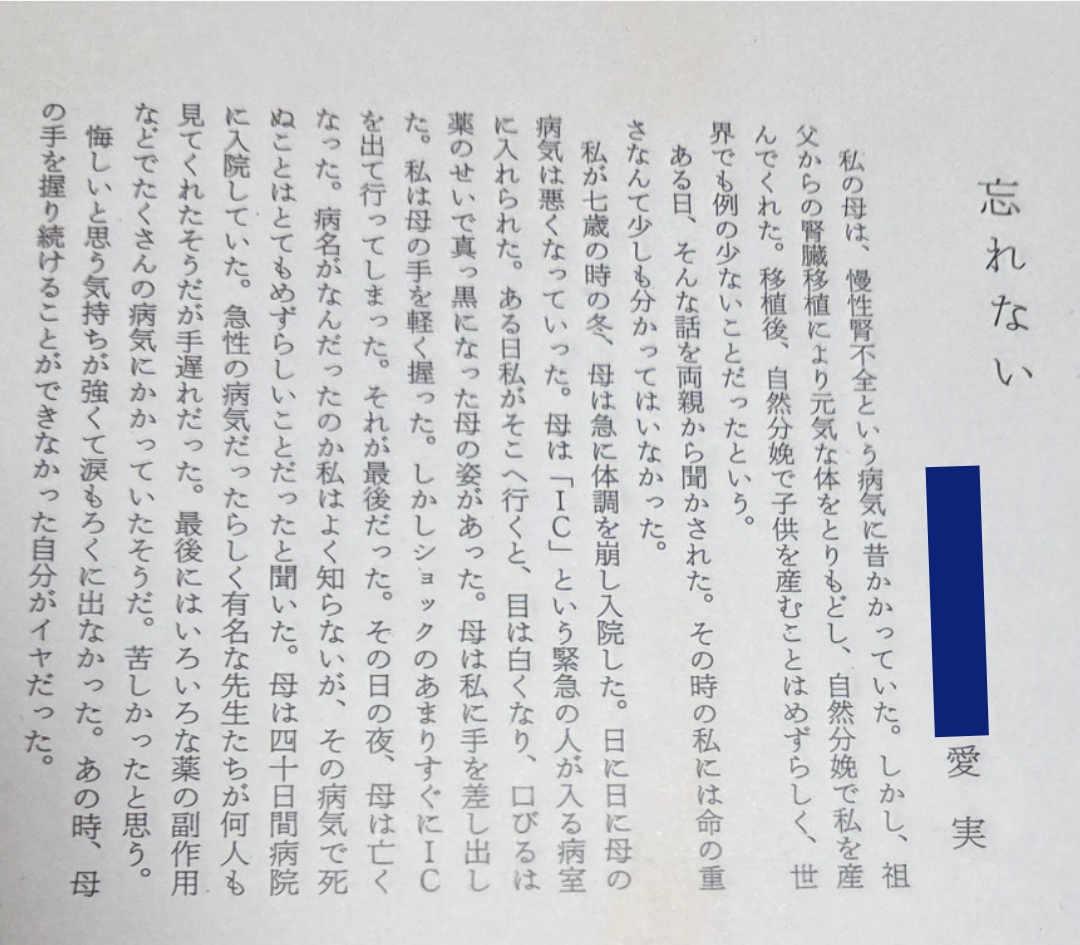 忘れない
愛実
私の母は、慢性腎不全という病気に昔かかっていた。しかし、祖
父からの腎臓移植により元気な体をとりもどし、自然分娩で私を産
んでくれた。移植後、自然分娩で子供を産むことはめずらしく、世
界でも例の少ないことだったという。
ある日、そんな話を両親から聞かされた。その時の私には命の重
さなんて少しも分かってはいなかった。
私が七歳の時の冬、母は急に体調を崩し入院した。日に日に母の
病気は悪くなっていった。母は「ＩＣ」という緊急の人が入る病室
に入れられた。ある日私がそこへ行くと、目は白くなり、口びるは
薬のせいで真っ黒になった母の姿があった。母は私に手を差し出し
た。私は母の手を軽く握った。しかしショックのあまりすぐにＩＣ
を出て行ってしまった。それが最後だった。その日の夜、母は亡く
なった。病名がなんだったのか私はよく知らないが、その病気で死
ぬことはとてもめずらしいことだったと聞いた。母は四十日間病院
に入院していた。急性の病気だったらしく有名な先生たちが何人も
見てくれたそうだが手遅れだった。最後にはいろいろな薬の副作用
などでたくさんの病気にかかっていたそうだ。苦しかったと思う。
悔しいと思う気持ちが強くて涙もろくに出なかった。あの時、母
の手を握り続けることができなかった自分がイヤだった。